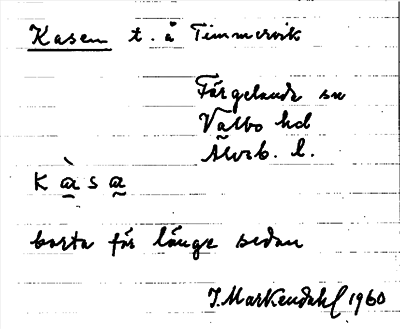 Kasen t. å Timmervik
Färgelanda sn
Valbo hd
Älvsb. l.
K à s a
borta för länge sedan
J. Markendahl 1960